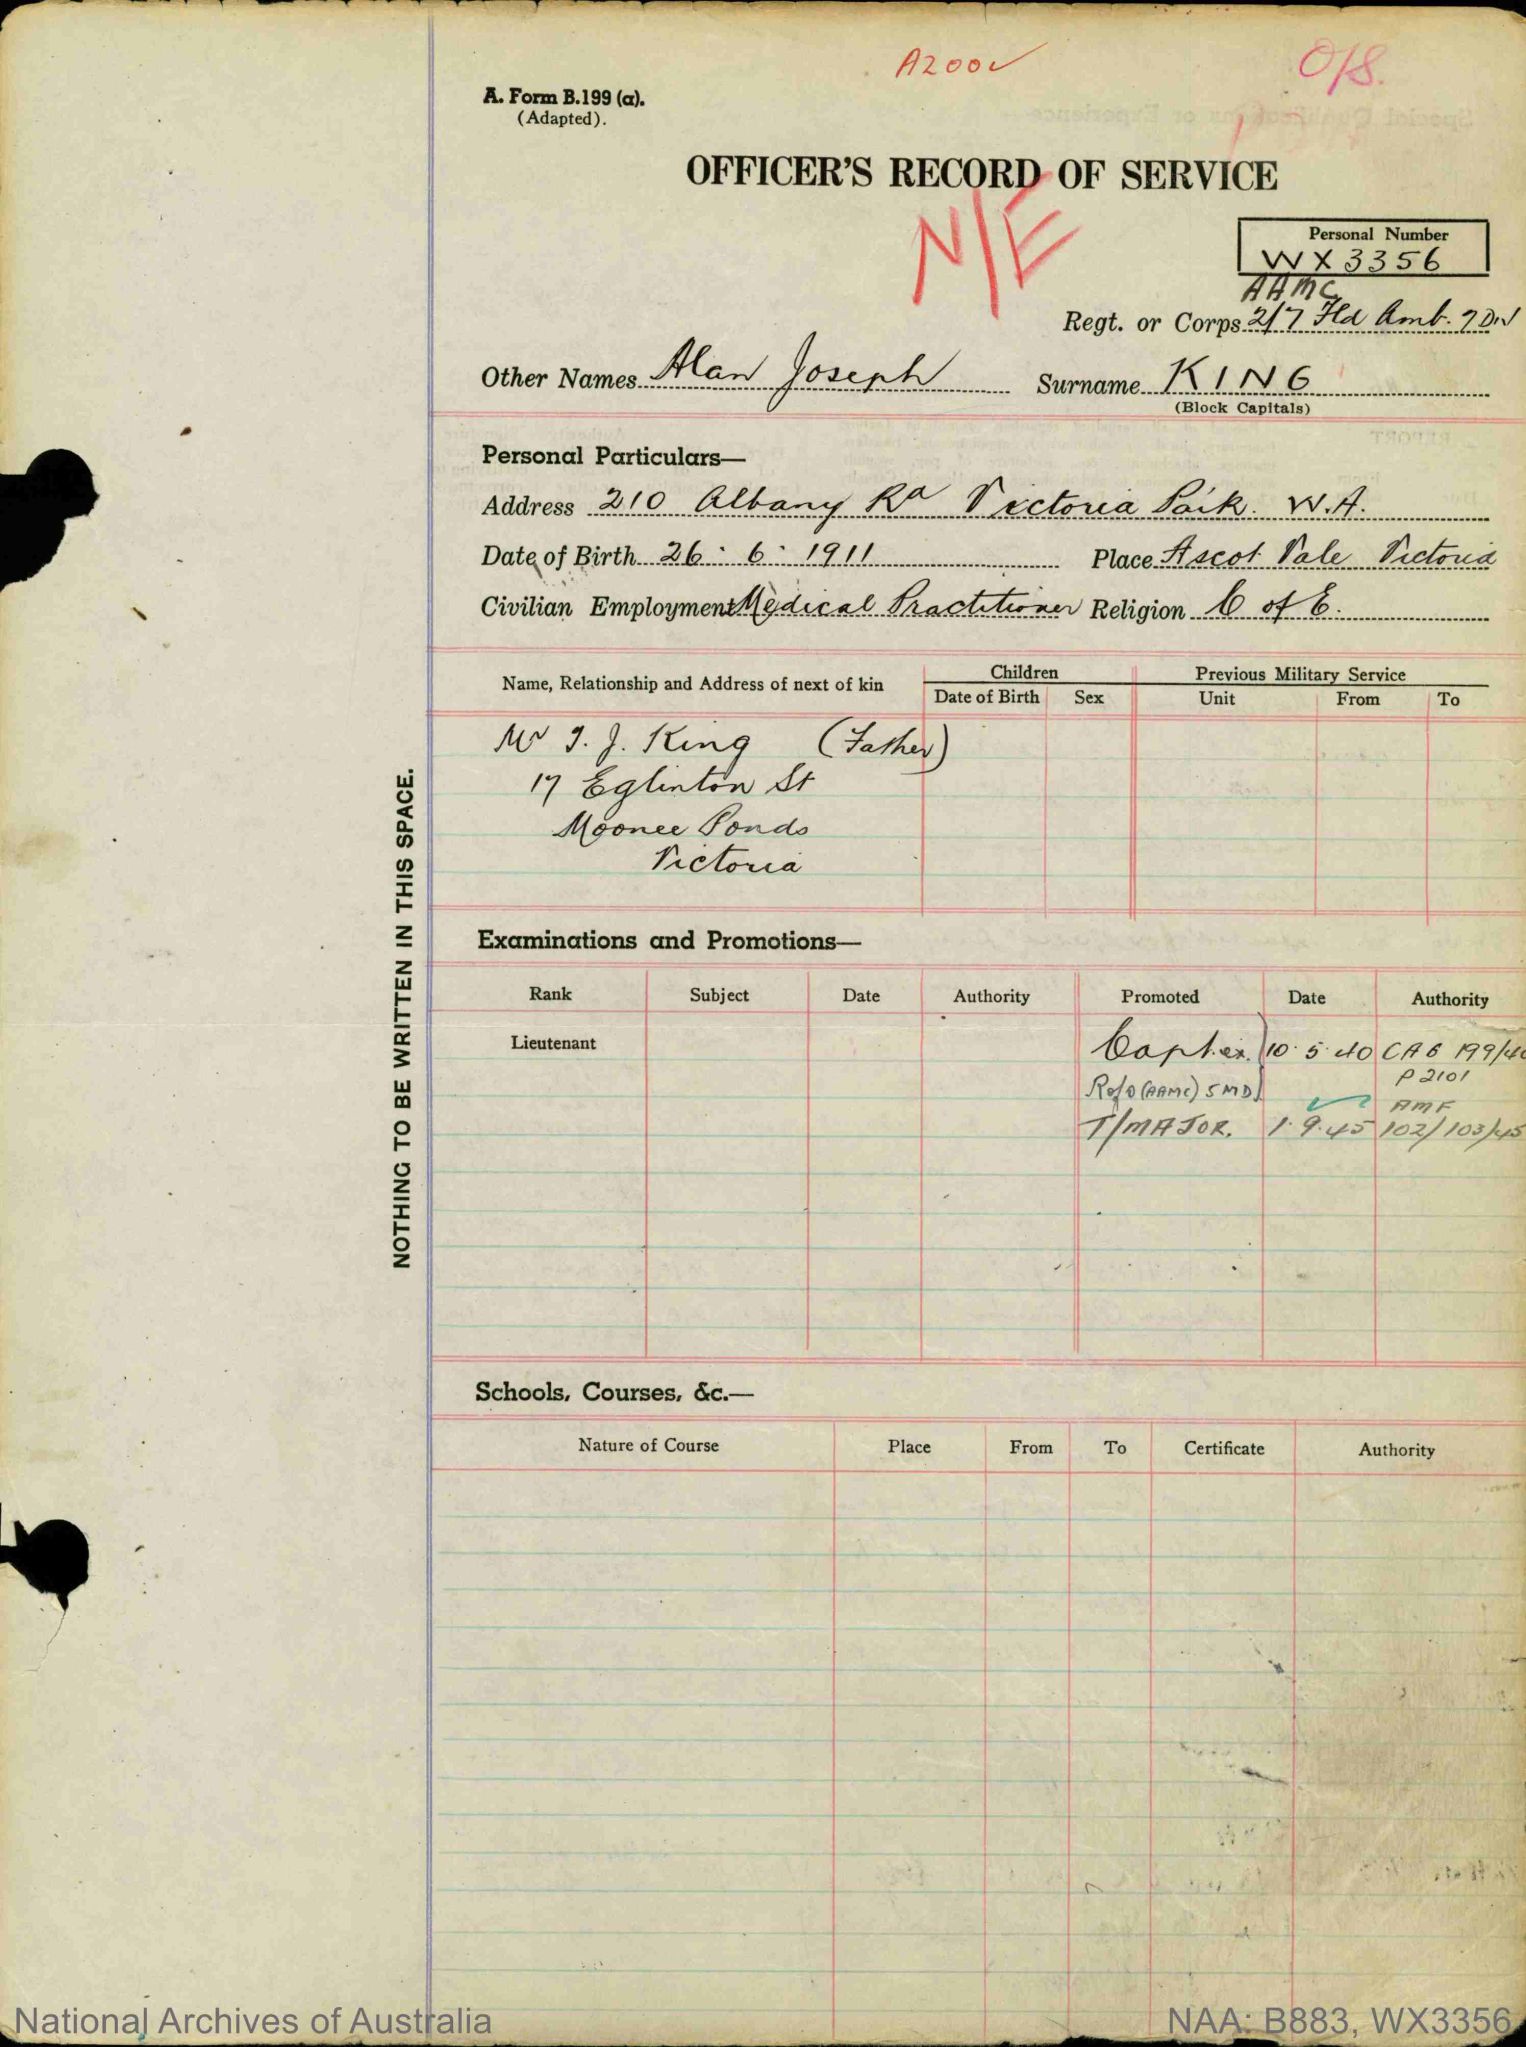 A200
O/S.
A. Form B.199 (a).
(Adapted).
OFFICER'S RECORD OF SERVICE
N/E
Personal Number
WX3356
AAMC
Regt. or Corps 2/7 Fld Amb. 7 Div
Other Names Alan Joseph Surname KING
(Block Capitals)
Personal Particulars—
Address 210 Albany Rd Victoria Park. W.A.
Date of Birth 26. 6. 1911 Place Ascot Vale Victoria
Civilian Employment Medical Practitioner Religion C of E.
Name, Relationship and Address of next of kin Children Previous Military Service
Date of Birth Sex Unit From To
Mr T. J. King (Father)
17 Eglinton St
Moonee Ponds
Victoria
Examinations and Promotions—
Rank Subject Date Authority Promoted Date Authority
Lieutenant Capt. ex. 10.5.40 CAG 199/40
R of O (AAMC) 5 MD P2101
AMF
T/MAJOR. 1.9.45 102/103/45
Schools, Courses, &c.—
Nature of Course Place From To Certificate Authority
NOTHING TO BE WRITTEN IN THIS SPACE.
National Archives of Australia
NAA: B883, WX3356